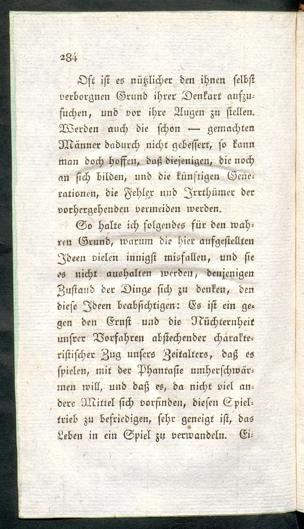 284
Oft ist es nützlicher den ihnen selbst
verborgnen Grund ihrer Denkart aufzu-
suchen, und vor ihre Augen zu stellen.
Werden auch die schon — gemachten
Männer dadurch nicht gebessert, so kann
man doch hoffen, daß diejenigen, die noch
an sich bilden, und die künftigen Gene-
rationen, die Fehler und Irrthümer der
vorhergehenden vermeiden werden.
So halte ich folgendes für den wah-
ren Grund, warum die hier aufgestellten
Ideen vielen innigst misfallen, und sie
es nicht aushalten werden, denjenigen
Zustand der Dinge sich zu denken, den
diese Ideen beabsichtigen: Es ist ein ge-
gen den Ernst und die Nüchternheit
unsrer Vorfahren abstechender charakte-
ristischer Zug unsers Zeitalters, daß es
spielen, mit der Phantasie umherschwär-
men will, und daß es, da nicht viel an-
dere Mittel sich vorfinden, diesen Spiel-
trieb zu befriedigen, sehr geneigt ist, das
Leben in ein Spiel zu verwandeln. Ei-